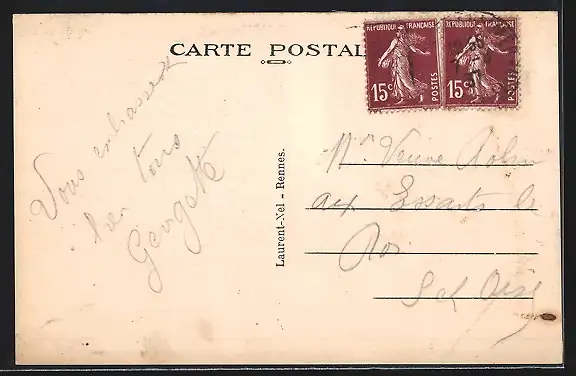 CARTE POSTAL
RÉPUBLIQUE FRANÇAISE
15c
POSTES
RÉPUBLIQUE FRANÇAISE
15c
POSTES
Vous embrasse
bien tous
Georgette
Laurent-Nel - Rennes.
Mme Veuve Robin
aux Essarts le
Roi
S et Oise